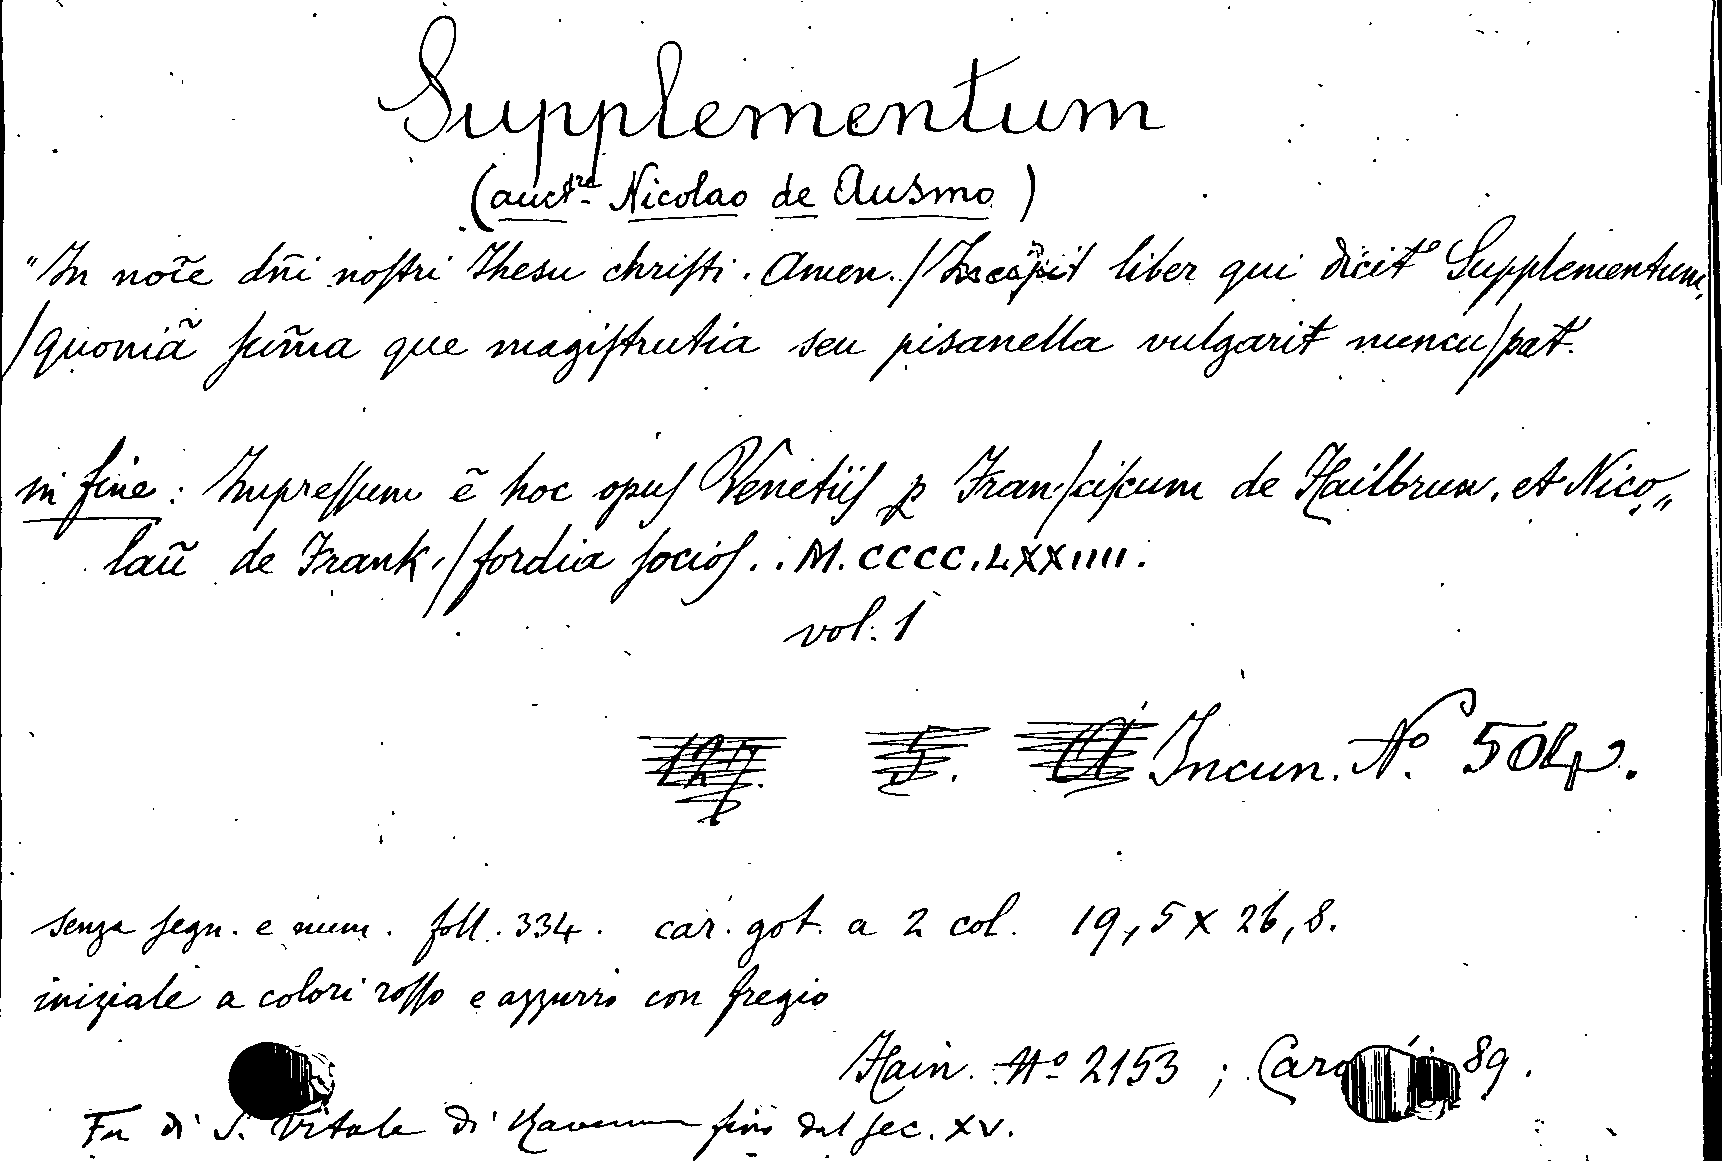 Supplementum
(auct.re Nicolao de Ausmo)
"In nor̃e dñi noſtri Iheſu chriſti. Amen./Incipit liber qui dicit' Supplementum,
/quoniã ſum̃a que magiſtrutia seu pisanella vulgarit nuncu/pat'.
in fine: Impreſſum ẽ hoc opuſ Venetiiſ ꝑ Fran-/ciſcum de Hailbrun. et Nico„
laũ de Frank-/fordia ſocioſ.. M.CCCC.LXXIIII.
vol. 1
127. 5. A Incun. Nº. 504.
senza ſegn. e num. foll. 334. car. got. a 2 col. 19,5 x 26,8.
iniziale a colori roſſo e azzurro con fregio
Hain. Nº 2153 ; 89.
Fu di S. Vitale di Ravenna fino dal ſec. XV.